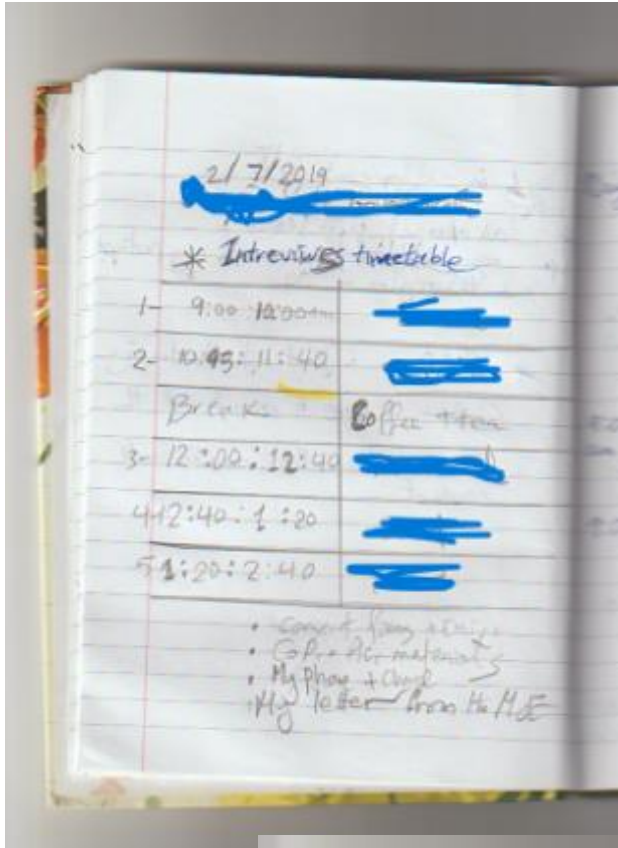 2/7/2019
* Intreviwes timetable
1- 9:00 10:00am
2- 10.45: 11:40
Break: Coffee + tea
3- 12:00:12:40
4-12:40:1:20
5 1:20:2:40
• consent
• materials
• My phone +
• My letter from the MoE